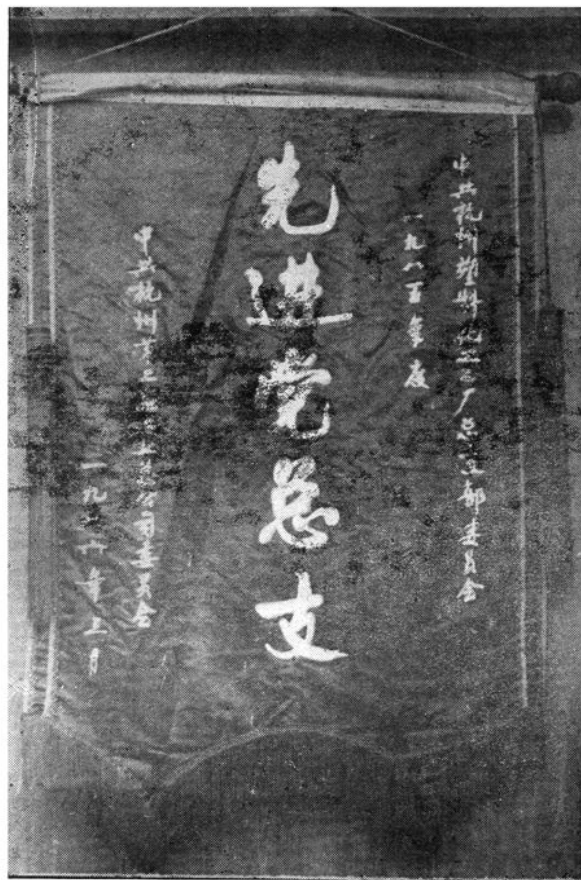 中共杭州塑料化工一厂总支部委员会
一九八五年度
先进党总支
中共杭州市工业公司委员会
一九八六年三月